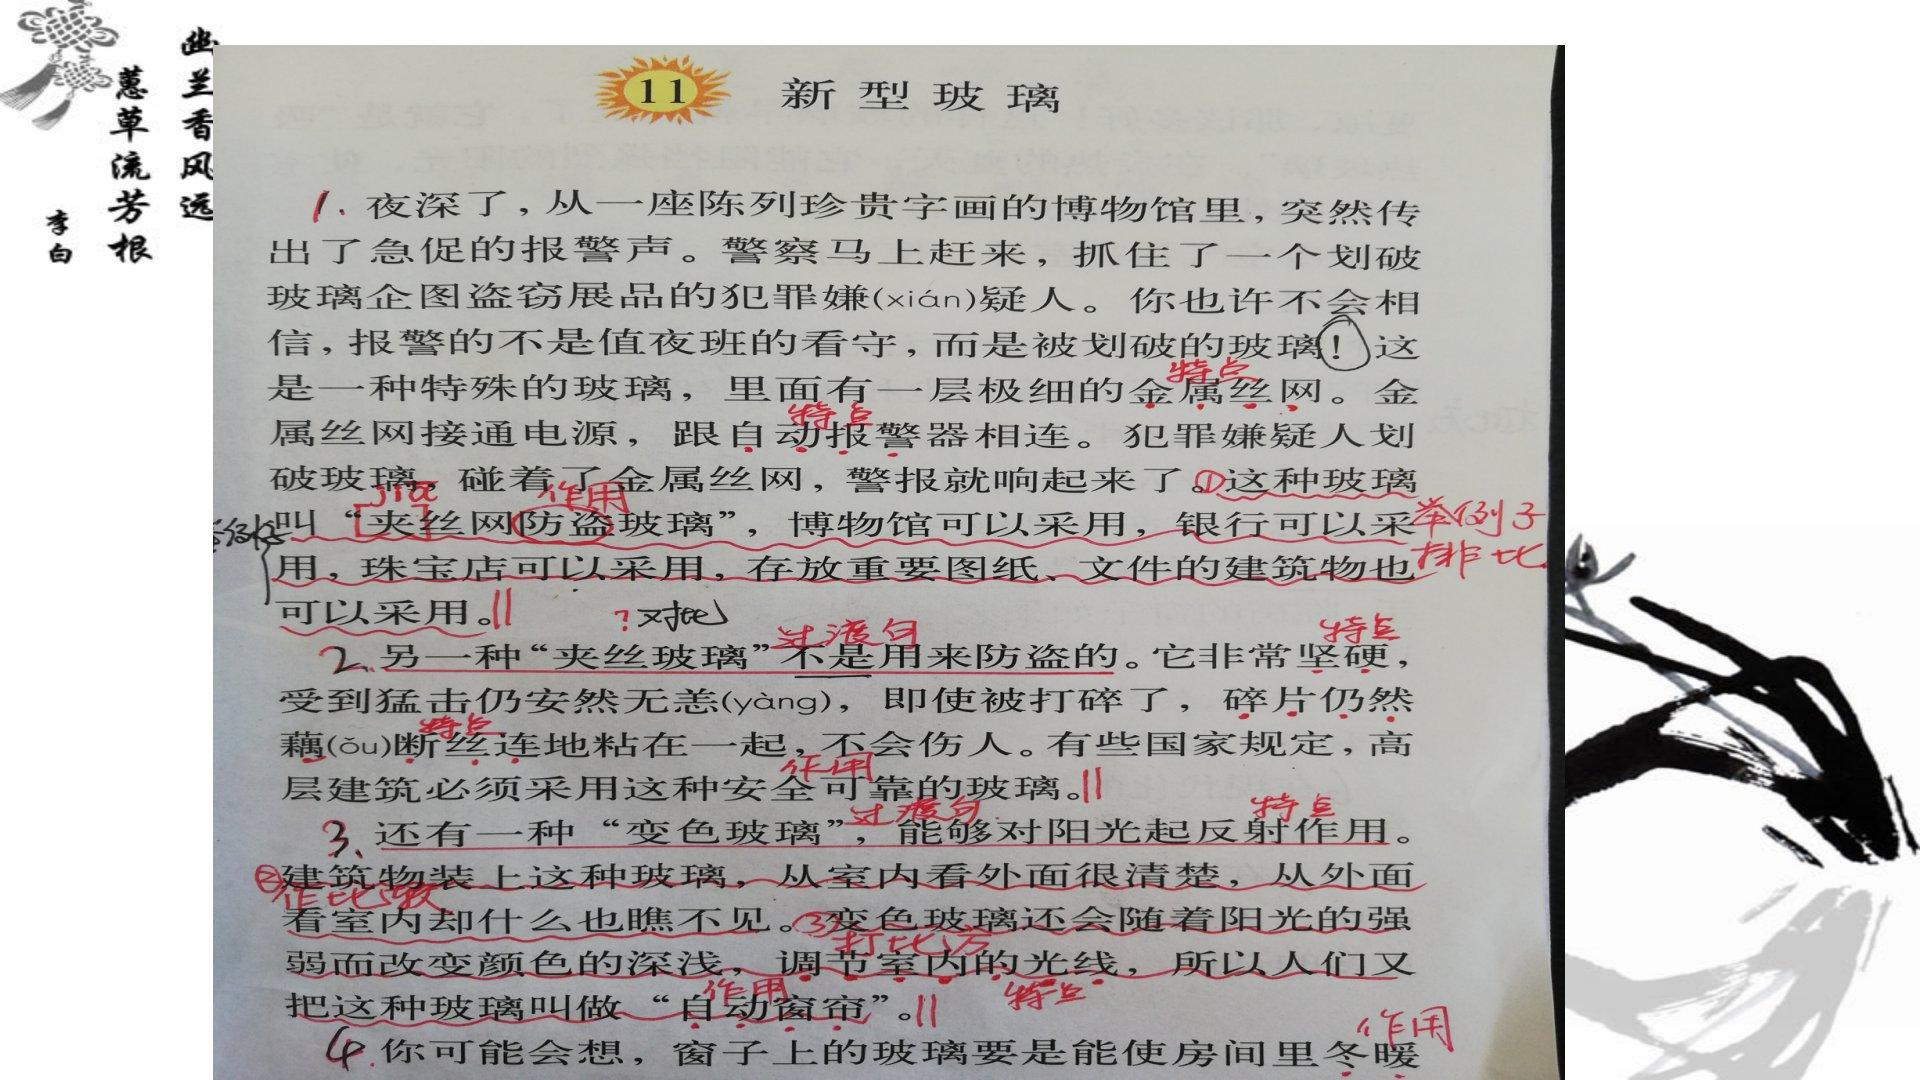 幽兰香风远
蕙草流芳根
李白
11 新型玻璃
1. 夜深了，从一座陈列珍贵字画的博物馆里，突然传
出了急促的报警声。警察马上赶来，抓住了一个划破
玻璃企图盗窃展品的犯罪嫌(xián)疑人。你也许不会相
信，报警的不是值夜班的看守，而是被划破的玻璃！这
特点
是一种特殊的玻璃，里面有一层极细的金属丝网。金
特点
属丝网接通电源，跟自动报警器相连。犯罪嫌疑人划
破玻璃，碰着了金属丝网，警报就响起来了。①这种玻璃
jiā 作用
叫“夹丝网防盗玻璃”，博物馆可以采用，银行可以采
举例子
排比
用，珠宝店可以采用，存放重要图纸、文件的建筑物也
可以采用。||
？对比
过渡句 特点
2、另一种“夹丝玻璃”不是用来防盗的。它非常坚硬，
受到猛击仍安然无恙(yàng)，即使被打碎了，碎片仍然
特点
藕(ǒu)断丝连地粘在一起，不会伤人。有些国家规定，高
作用
层建筑必须采用这种安全可靠的玻璃。||
过渡句 特点
3、还有一种“变色玻璃”，能够对阳光起反射作用。
②建筑物装上这种玻璃，从室内看外面很清楚，从外面
作比较
看室内却什么也瞧不见。③变色玻璃还会随着阳光的强
打比方
弱而改变颜色的深浅，调节室内的光线，所以人们又
作用 特点
把这种玻璃叫做“自动窗帘”。||
作用
4.你可能会想，窗子上的玻璃要是能使房间里冬暖